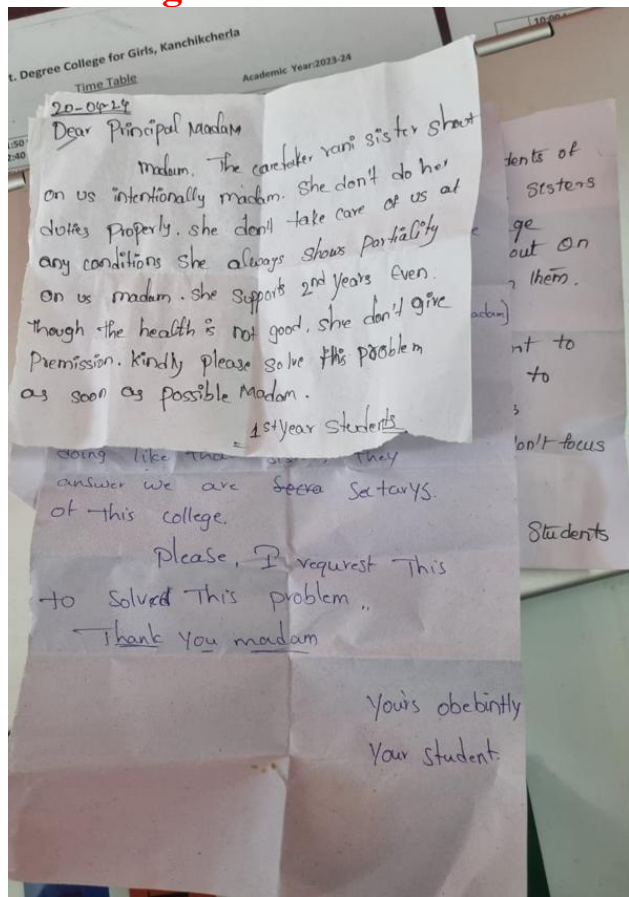 t. Degree College for Girls, Kanchikcherla
Time Table
Academic Year:2023-24
10:00
1:50
2:40
20-04-24
Dear Principal Madam
madam. The caretaker rani sister shout
on us intentionally madam. She don't do her
duties Properly. she don't take care of us at
any conditions she always shows partiality
on us madam. She supports 2nd years Even.
Though the health is not good. she don't give
Premission. kindly please solve this problem
as soon as possible Madam.
1st year Students
dents of
sisters
ge
out on
them.
adam)
nt to
to
s
on't focus
Students
doing like that they
answer we are Sectarys.
of this college.
Please, I requrest This
to Solved This problem..
Thank you madam
Your's obebintly
Your student.